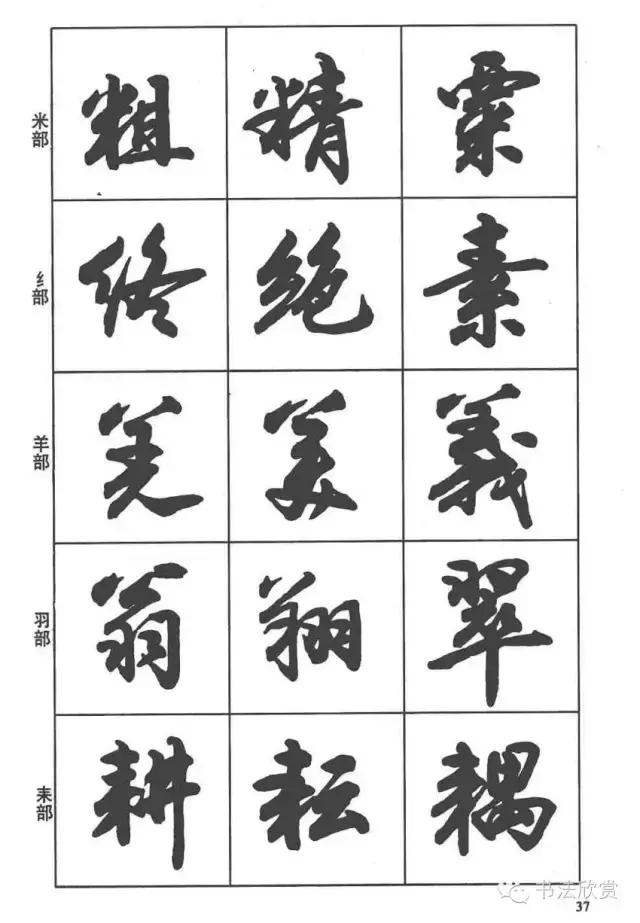 米部 粗 精 粟
纟部 终 绝 素
羊部 羌 美 義
羽部 翁 翔 翠
耒部 耕 耘 耦
书法欣赏
37